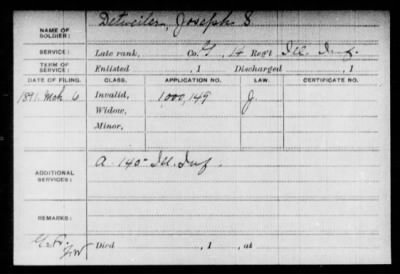 NAME OF SOLDIER: Detweiler, Joseph S
SERVICE: Late rank, Co. G, 14 Reg't Ill. Inf.
TERM OF SERVICE: Enlisted , 1 Discharged , 1
DATE OF FILING. CLASS. APPLICATION NO. LAW. CERTIFICATE NO.
1891. Mch 6 Invalid, 1,000,149 J.
Widow,
Minor,
ADDITIONAL SERVICES: A. 140" Ill. Inf.
REMARKS:
Died , 1 , at